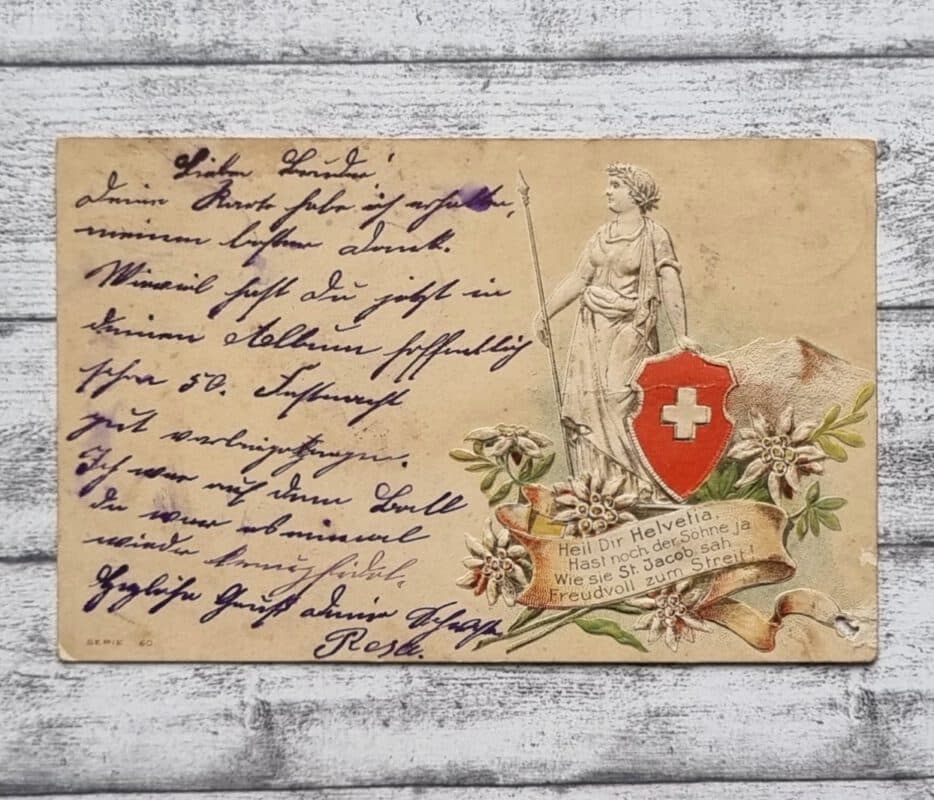 Lieber Bruder!
Deine Karte habe ich erhalten,
meinen besten Dank.
Wieviel hast Du jetzt in
deinem Album hoffentlich
schon 50. Fastnacht
gut
Ich war auf dem Ball
da war es einmal
wieder kreuzfidel.
Herzliche Gruß deine Schwester
Resa.
SERIE 60
Heil Dir Helvetia,
Hast noch der Söhne ja
Wie sie St. Jacob sah
Freudvoll zum Streit!